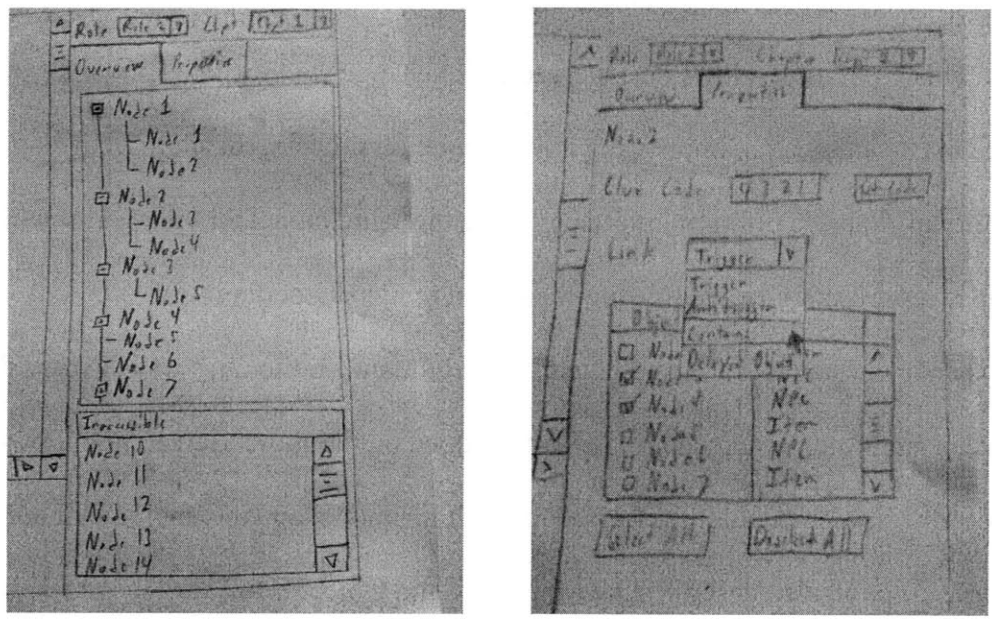 Role Role 2 Chpt Chpt 1
Overview Properties
Node 1
Node 1
Node 2
Node 2
Node 3
Node 4
Node 3
Node 5
Node 4
Node 5
Node 6
Node 7
Inaccessible
Node 10
Node 11
Node 12
Node 13
Node 14
Role Role 2 Chapter
Overview Properties
Node 2
Clue Code 4321 Set Code
Link Trigger
Trigger
Antitrigger
Contains
Delayed Object
Node
Node
Node NPC
Node Item
Node 6 NPC
Node 7 Item
Select All Deselect All